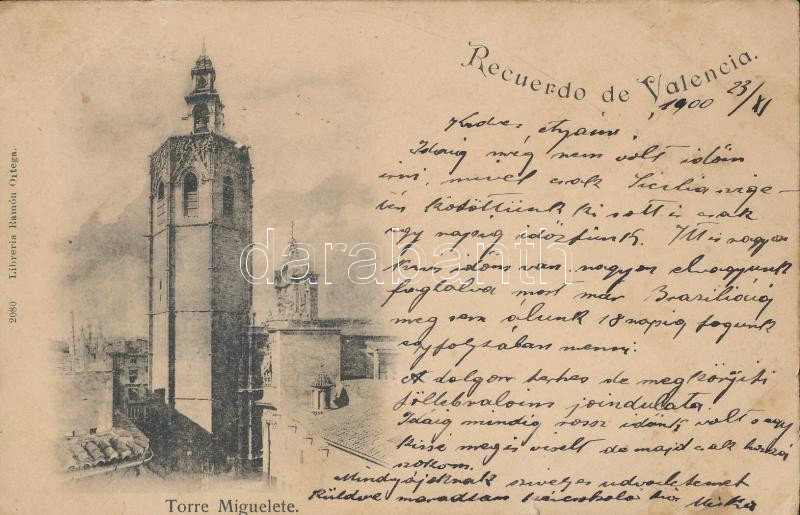 Recuerdo de Valencia.
1900 23/XI
Kedves Atyám!
Idáig még nem volt időm
irni, mivel csak Sicilia szige-
tén kötöttünk ki s ott is csak
egy napig időztünk. Itt is nagyon
kevés időm van, nagyon el vagyunk
foglalva most már Braziliáig
meg sem álunk 18 napig fogunk
egyfolytában menni.
A dolgom terhes de megkönyiti
föllebvalóim joindulata.
Idáig mindig rossz időnk volt s egy
kissé meg is viselt de majd csak hozzá
szokom.
Mindnyájoknak szivélyes üdvözletemet
Küldve maradtam kézcsókoló
darabanth
2080 Libreria Ramón Ortega.
Torre Miguelete.